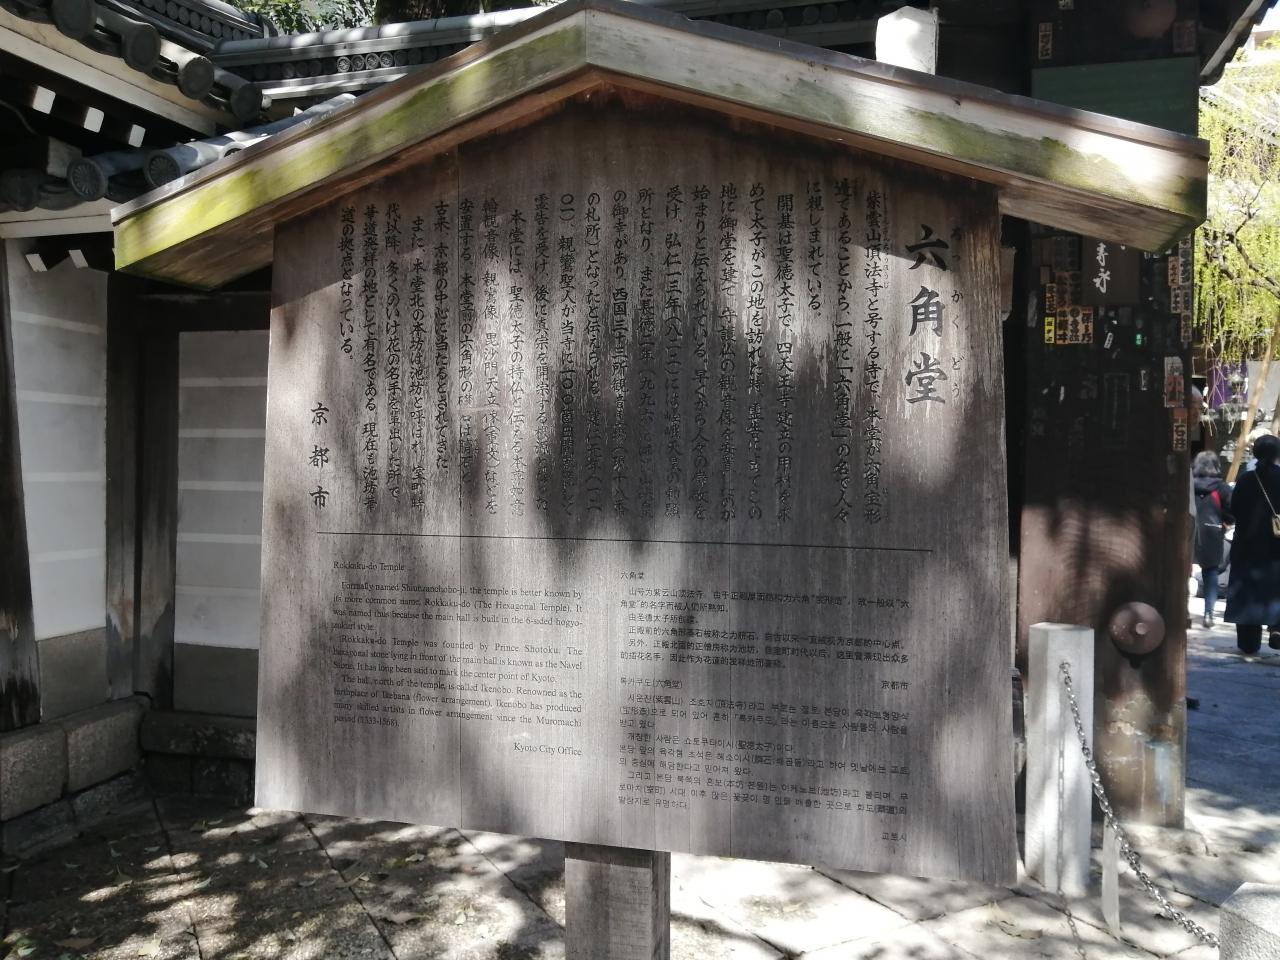 六角堂
ろっかくどう
紫雲山頂法寺と号する寺で、本堂が六角宝形
造であることから、一般に「六角堂」の名で人々
に親しまれている。
開基は聖徳太子で、四天王寺建立の用材を求
めて太子がこの地を訪れた時、霊告によってこの
地に御堂を建て、守護仏の観音像を安置したのが
始まりと伝えられている。早くから人々の崇敬を
受け、弘仁一三年(八二二)には嵯峨天皇の勅願
所となり、また長徳二年(九九六)には
の御幸があり、西国三十三所観音霊場(第十八番
の札所)となったと伝えられる。建仁元年(一二
〇一)、親鸞聖人が当寺に一〇〇箇日間参籠して
霊告を受け、後に真宗を開宗する
本堂には、聖徳太子の持仏と伝える本尊如意
輪観音像、親鸞像、毘沙門天立像(重文)などを
安置する。本堂前の六角形の
古来、京都の中心に当たるとされてきた。
また、本堂北の本坊は池坊と呼ばれ、室町時
代以降、多くのいけ花の名手を輩出した所で、
華道発祥の地として有名である。現在も池坊華
道の拠点となっている。
京都市
Rokkaku-do Temple
Formally named Shiunzanchoho-ji, the temple is better known by
its more common name, Rokkaku-do (The Hexagonal Temple). It
was named thus because the main hall is built in the 6-sided hogyo-
zukuri style.
Rokkaku-do Temple was founded by Prince Shotoku. The
hexagonal stone lying in front of the main hall is known as the Navel
Stone. It has long been said to mark the center point of Kyoto.
The hall, north of the temple, is called Ikenobo. Renowned as the
birthplace of Ikebana (flower arrangement), Ikenobo has produced
many skilled artists in flower arrangement since the Muromachi
period (1333-1568).
Kyoto City Office
六角堂
山号为紫云山顶法寺。由于正殿屋面结构为六角“宝形造”，故一般以“六
角堂”的名字而被人们所熟知。
由圣德太子所创建。
正殿前的六角形基石被称之为脐石，自古以来一直被视为京都的中心点。
另外，正殿北面的正僧房称为池坊，自室町时代以后，这里曾涌现出众多
的插花名手，因此作为花道的发祥地而著称。
京都市
록카쿠도(六角堂)
시운잔(紫雲山) 조호지(頂法寺)라고 부르는 절로, 본당이 육각보형양식
(宝形造)으로 되어 있어 흔히 「록카쿠도」라는 이름으로 사람들의 사랑을
받고 있다.
개창한 사람은 쇼토쿠타이시(聖徳太子)이다.
본당 앞의 육각형 초석은 헤소이시(臍石:배꼽돌)라고 하여 옛날에는 교토
의 중심에 해당한다고 믿어져 왔다.
그리고 본당 북쪽의 혼보(本坊:본원)는 이케노보(池坊)라고 불리며, 무
로마치(室町) 시대 이후 많은 꽃꽂이 명인을 배출한 곳으로 화도(華道)의
발상지로 유명하다.
교토시
寿永